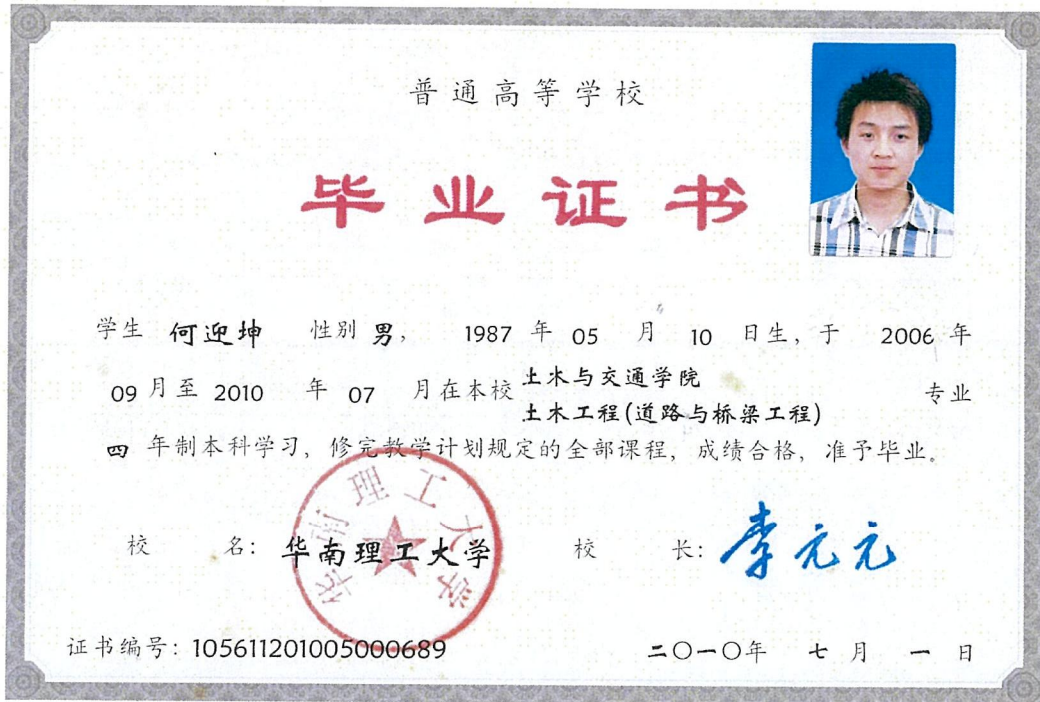 普通高等学校
毕业证书
学生 何迎坤 性别 男， 1987 年 05 月 10 日生，于 2006 年
09 月至 2010 年 07 月在本校 土木与交通学院 专业
土木工程(道路与桥梁工程)
四 年制本科学习，修完教学计划规定的全部课程，成绩合格，准予毕业。
校 名： 华南理工大学 校 长： 李元元
华南理工大学
证书编号：105611201005000689 二〇一〇年 七 月 一 日